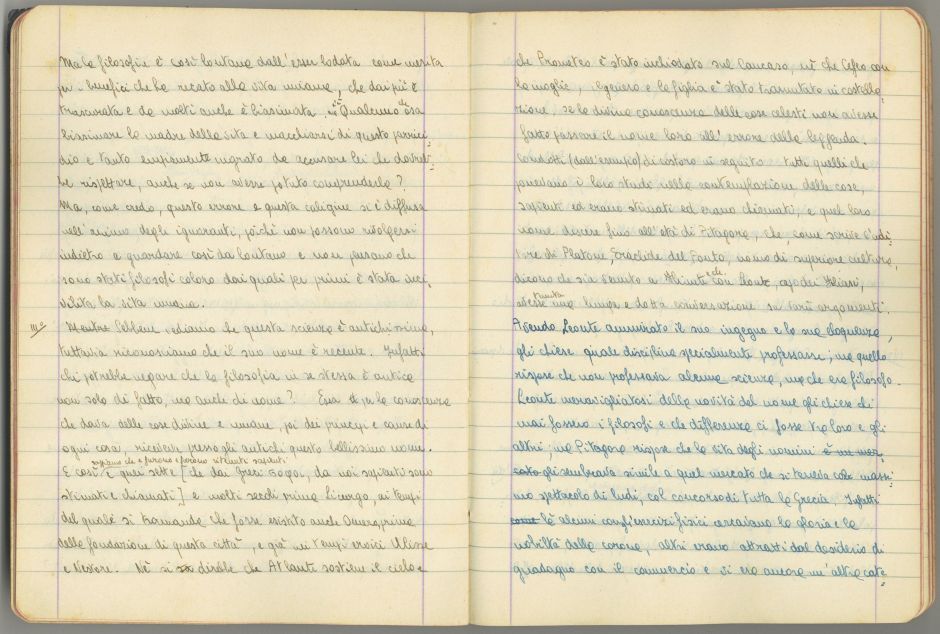 Ma la filosofia è così lontana dall'esser lodata come merita
per i benefici che ha recato alla vita umana, che dai più è
trascurata e da molti anche è biasimata. Qualcuno osa
biasimare la madre della vita e macchiarsi di questo parrici
dio e tanto empiamente ingrato da accusare lei che dovreb=
be rispettare, anche se non avesse potuto comprenderla?
Ma, come credo, questo errore e questa caligine si è diffusa
nell'animo degli ignoranti, poichè non possono rivolgersi
indietro e guardare così da lontano e non pensano che
sono stati filosofi coloro dai quali per primi è stata inci
vilita la vita umana.
Mentre sebbene vediamo che questa scienza è antichissima,
tuttavia riconosciamo che il suo nome è recente. Infatti
chi potrebbe negare che la filosofia in se stessa è antica
non solo di fatto, ma anche di nome? Essa per la conoscenza
che dava delle cose divine e umane, poi dei principi e cause di
ogni cosa, riceveva presso gli antichi questo bellissimo nome.
sappiamo che e furono e furono ritenuti sapienti
E così quei sette [che dai Greci σοφοι, da noi sapienti sono
stimati e chiamati] e molti secoli prima Licurgo, ai tempi
del quale si tramanda che fosse esistito anche Omero, prima
della fondazione di questa città, e già nei tempi eroici Ulisse
e Nestore. Nè si direbbe che Atlante sostiene il cielo e
che Prometeo è stato inchiodato sul Caucaso, nè che Cefeo con
la moglie, il genero e la figlia è stato tramutato in costella
zione, se la divina conoscenza delle cose celesti non avesse
fatto passare il nome loro all'errore della leggenda.
Condotti (dall'esempio) di costoro in seguito tutti quelli che
ponevano i loro studi nella contemplazione delle cose,
sapienti ed erano stimati ed erano chiamati, e quel loro
nome durò fino all'età di Pitagora, che, come scrive l'udi
tore di Platone, Eraclide del Ponto, uomo di superiore cultura,
dicono che sia venuto a Fliunte e che con Leonte, capo dei Fliasi,
tenuta
avesse una lunga e dotta conversazione su vari argomenti.
Avendo Leonte ammirato il suo ingegno e la sua eloquenza,
gli chiese quale disciplina specialmente professasse; ma quello
rispose che non professava alcuna scienza, ma che era filosofo.
Leonte meravigliatosi della novità del nome gli chiese chi
mai fossero i filosofi e che differenza ci fosse tra loro e gli
altri; ma Pitagora rispose che la vita degli uomini è un mer
cato gli sembrava simile a quel mercato che si teneva col massi=
mo spettacolo di ludi, col concorso di tutta la Grecia. Infatti
come là alcuni con gli esercizi fisici cercavano la gloria e la
nobiltà della corona, altri erano attratti dal desiderio di
guadagno con il commercio e vi era ancora un'altra cate=